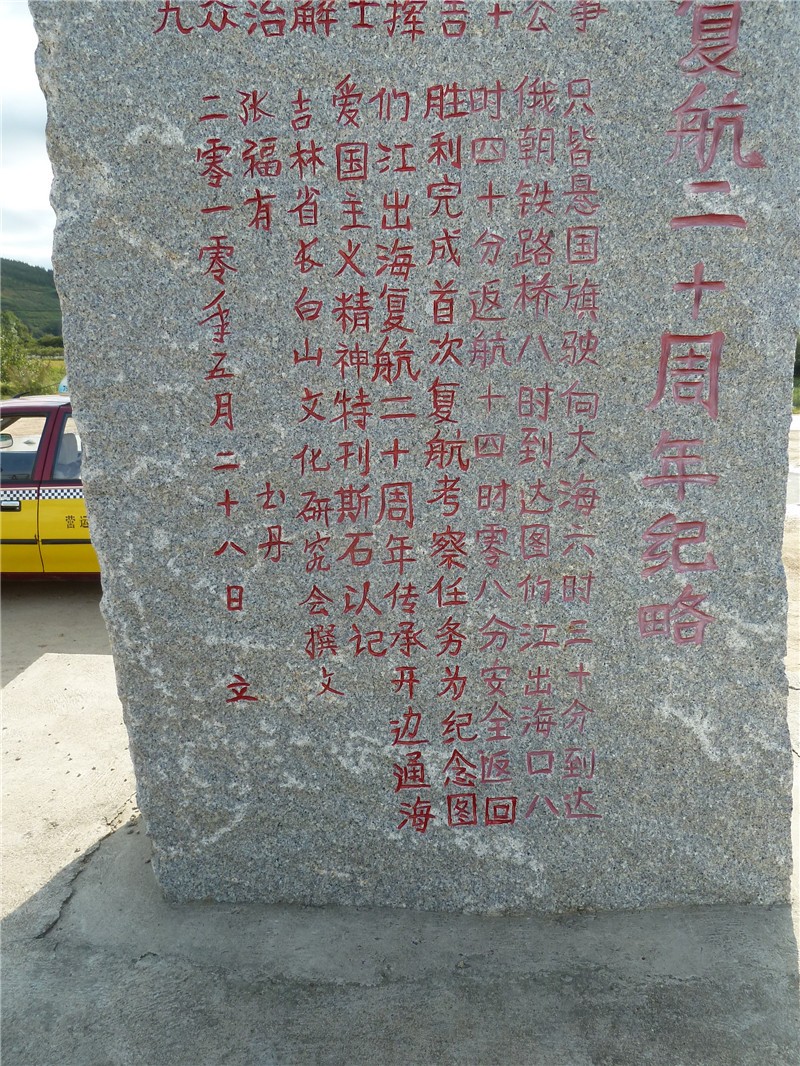 复航二十周年纪略
争
公
十
吉
挥
士
解
治
众
九
只皆悬国旗驶向大海六时三十分到达
俄朝铁路桥八时到达图们江出海口八
时四十分返航十四时零八分安全返回
胜利完成首次复航考察任务为纪念图
们江出海复航二十周年传承开边通海
爱国主义精神特刊斯石以记
吉林省长白山文化研究会撰文
张福有 书丹
二零一零年五月二十八日 立
营运